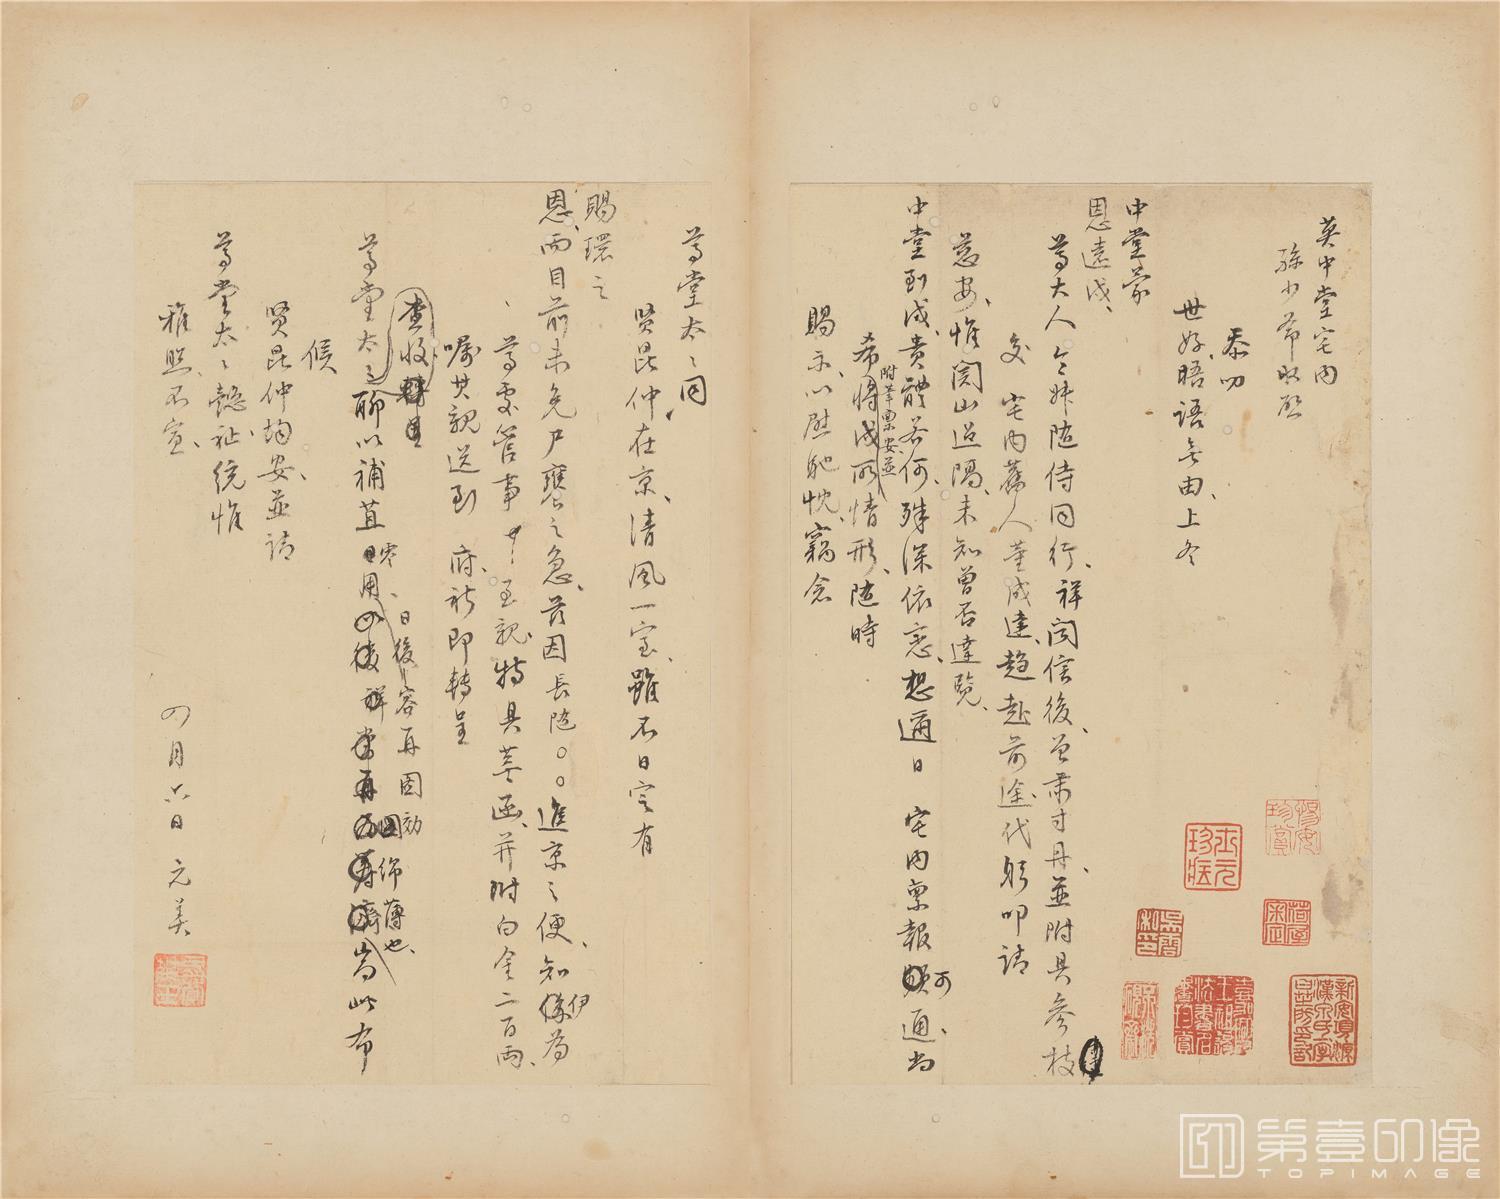 英中堂宅内
孫少爺收啟
忝叨
世好晤語無由上冬
中堂蒙
恩遠戍
尊大人令姊隨侍同行祥聞信後曾肅寸丹並附具參枝
交宅内舊人董成達趨赴前途代躬叩請
慈安惟関山迢隔未知曾否達覽
中堂到戍貴體若何殊深依恋想邇日宅内稟報可通尚
希將戍所情形隨時
附筆稟安並
賜示以慰馳忱竊念
尊堂太太同
賢昆仲在京清風一室雖不日定有
賜環之
恩而目前未免尸饔之急茲因長隨〇〇進京之便知伊為
尊處管事至親特具菲函并附白金二百兩
囑其親送到府祈即轉呈
查收
尊堂太太聊以補苴日用
零
日後容再圖効
綿薄也
耑此布
候
賢昆仲均安並請
尊堂太太懿祉統惟
雅照不宣
四月六日元美
第壹印像
TOPIMAGE